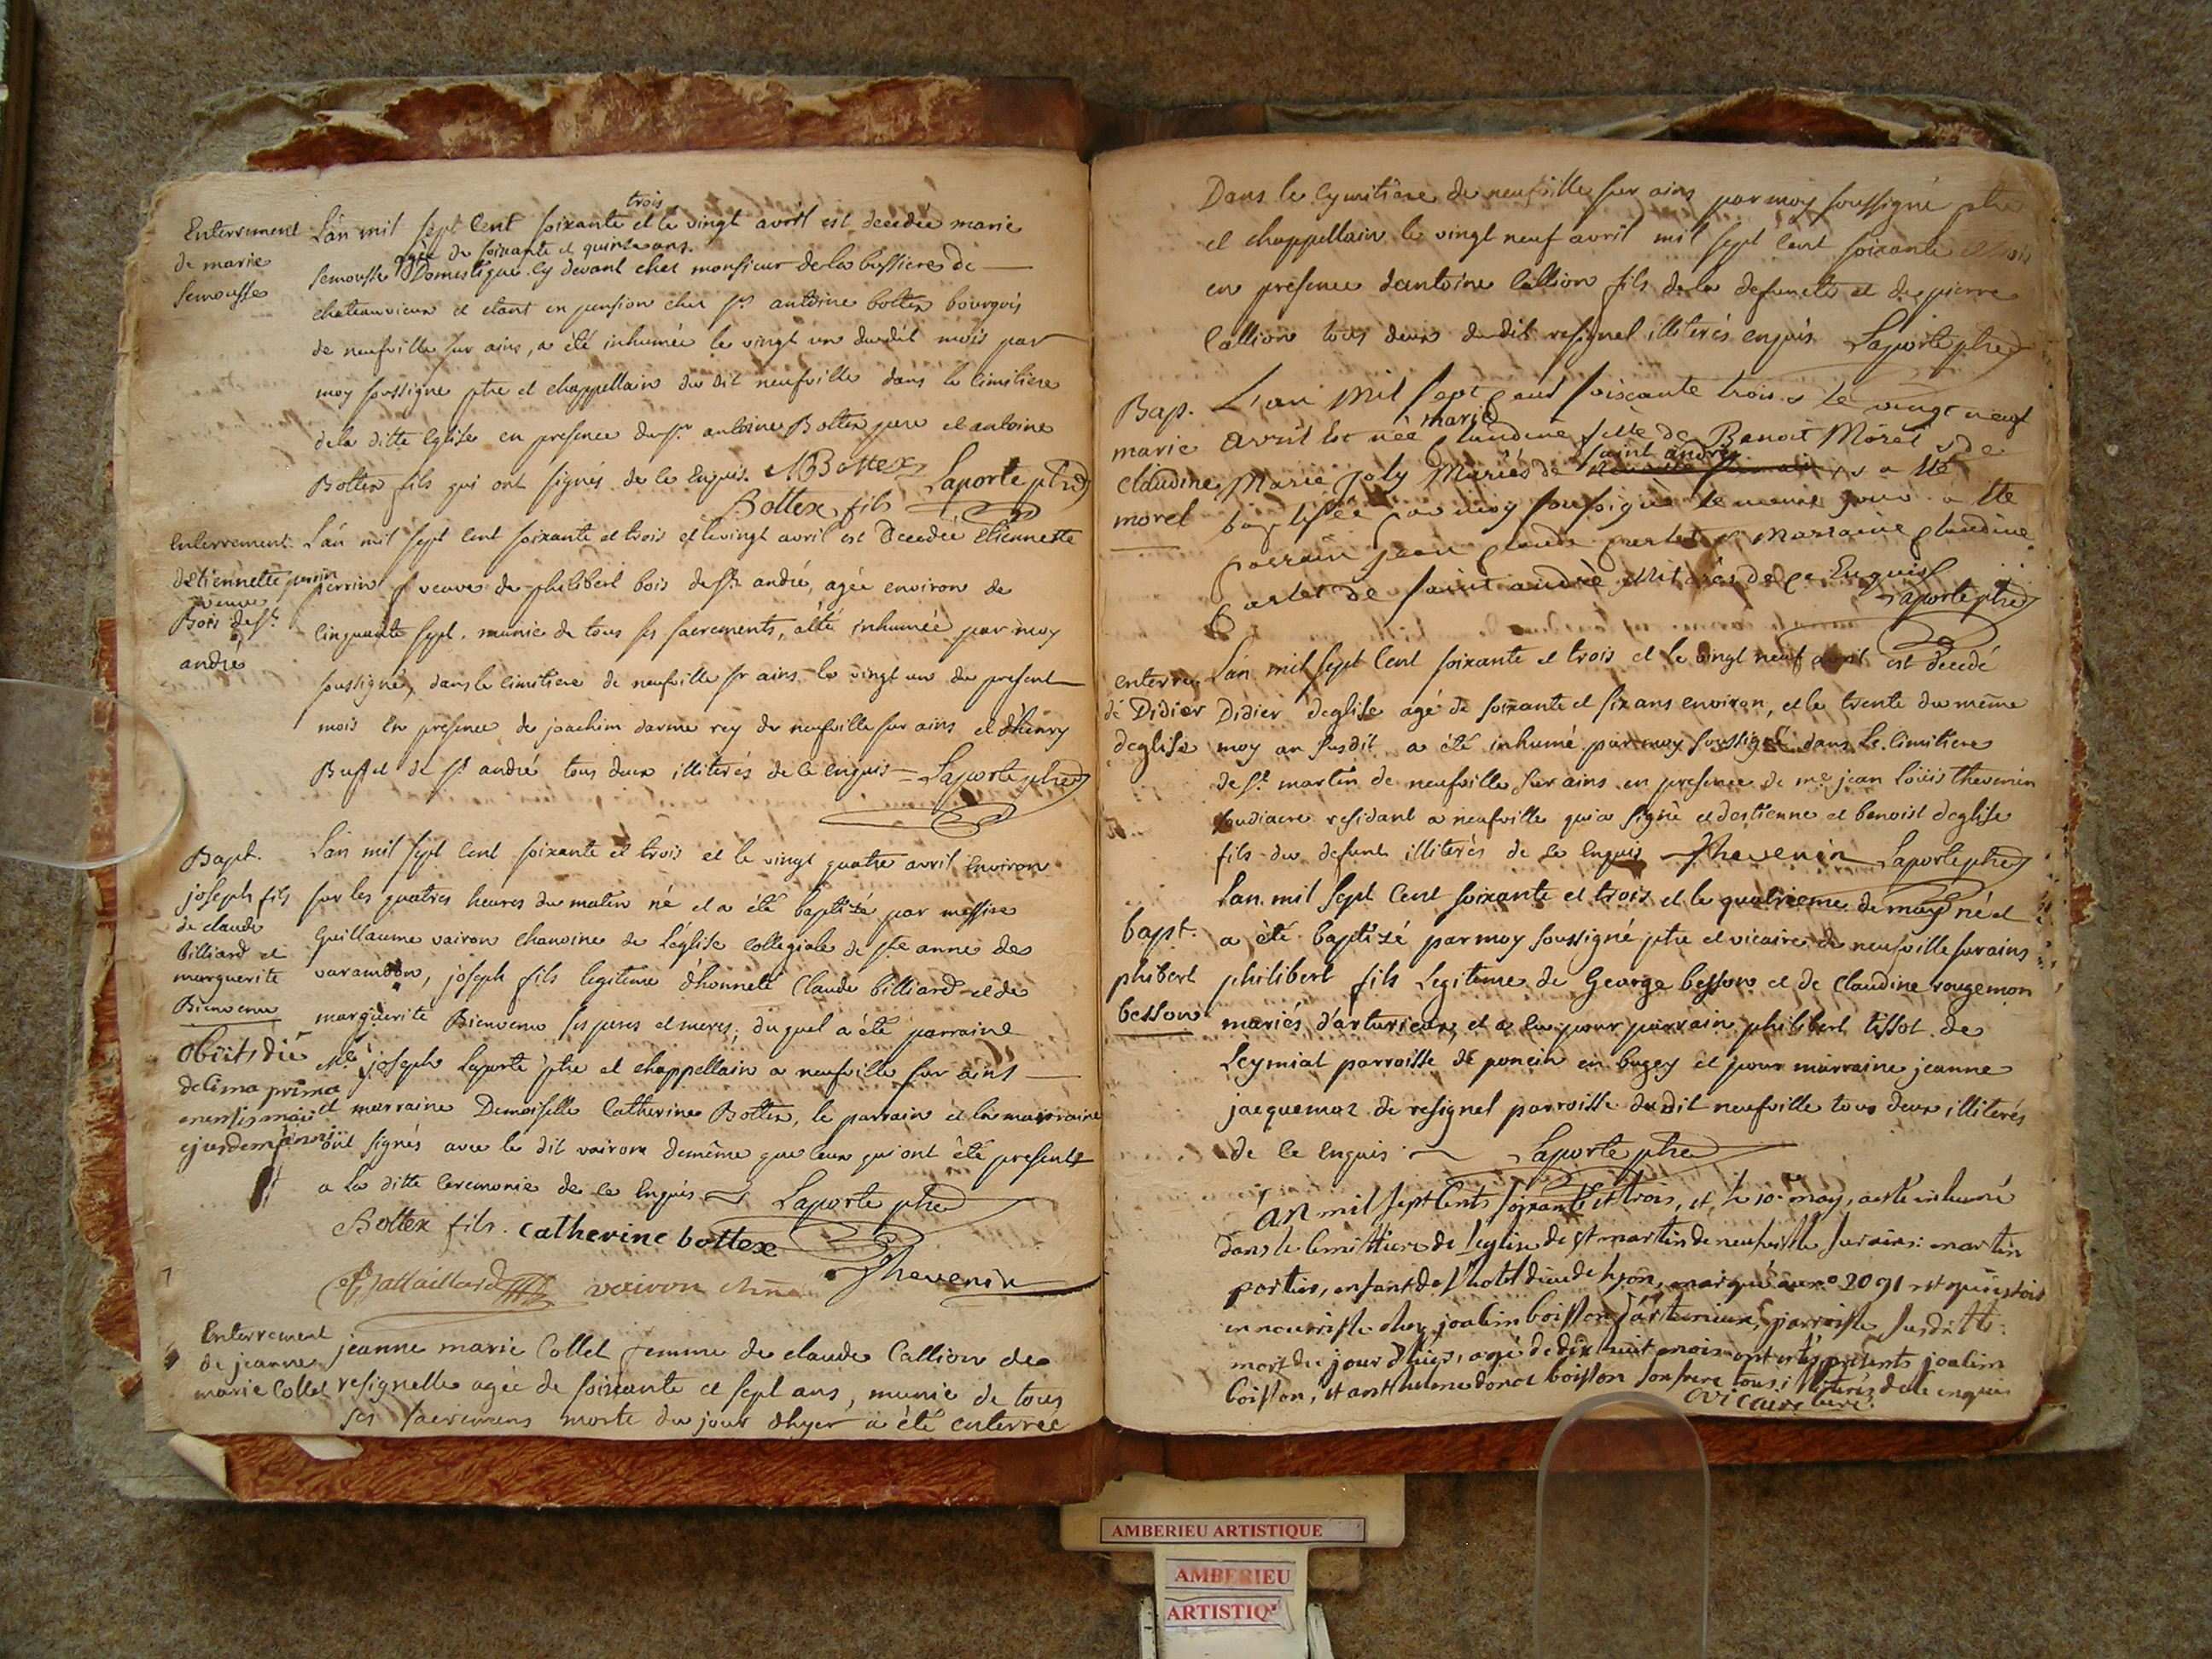 Enterrement
de marie
Semousse
L'an mil sept cent soixante trois et le vingt avril est decedée marie
agée de soixante et quinze ans.
Semousse Domestique cy devant chez monsieur de la bessiere de
chateauvieux et etant en pension chez sr antoine bottex bourgois
de neufville sur ains, a été inhumée le vingt un du dit mois par
moy soussigne ptre et chappellain du dit neufville dans le cimitiere
de la ditte Eglise en presence du sr antoine Bottex pere et antoine
Bottex fils qui ont signés de ce Enquis. Bottex Laporte ptre
Bottex fils
Enterrement
d'etiennette perrin
veuve
Bois de st
andré
L'an mil sept cent soixante et trois et le vingt avril est Decedée Etiennette
perrin veuve de philibert bois de st andré, agée environ de
cinquante sept. munie de tous ses sacrements, a été inhumée par moy
soussigné, dans le cimitiere de neufville sr ains le vingt un du present
mois en presence de joachim darme rey de neufville sur ains et d'henry
Buffet de st andré tous deux illiterés de ce enquis Laporte ptre
Bapt.
joseph fils
de claude
Billiard et
marguerite
Bienvenu
obiit die
decima prima
mensis maii
ejusdem anni
L'an mil sept cent soixante et trois et le vingt quatre avril Environ
sur les quatres heures du matin né et a été baptizé par messire
Guillaume vairon chanoine de L'église collegiale de ste anne des
varambon, joseph fils legitime d'honnete Claude billiard et de
marguerite Bienvenu ses peres et meres; duquel a été parraine
Me joseph Laporte ptre et chappellain a neufville sur ains
et marraine Demoiselle Catherine Bottex, le parrain et la marraine
ont signés avec le dit vairon demême que ceux qui ont été presents
a la ditte Ceremonie de ce Enquis Laporte ptre
Bottex fils. catherine bottex
Thevenin
vairon
Enterrement
de jeanne
marie Collet
jeanne marie Collet femme de claude Callion de
resignelle agée de soixante et sept ans, munie de tous
ses sacremens morte du jour d'hyer a été enterrée
Dans le Cymitiere de neufville sur ains par moy soussigné ptre
et chappellain le vingt neuf avril mil sept cent soixante et trois
en presence d'antoine Callion fils de la defuncte et de pierre
Callion tous deux du dit resignel illiterés enquis Laporte ptre
Bap.
marie
claudine
morel
L'an Mil Sept cent soixante trois & le vingt neuf
avril est née marie Claudine fille de Benoit Morel & de
Marie joly Mariés de saint andré & a été
baptisée par moy soussigné le meme jour a été
parrain jean Claude & Marraine Claudine
de saint andrè illiterés de ce Enquis
Laporte ptre
enterre
de Didier
deglise
L'an mil sept Cent soixante et trois et le vingt neuf avril est decedé
Didier deglise agé de soixante et six ans environ, et le trente du même
moy an susdit a été inhumé par moy soussigné dans le cimitiere
de st martin de neufville sur ains en presence de me jean loüis thevenin
soudiacre residant a neufville qui a signé et d'estienne et benoist deglise
fils du defunt illiterés de ce enquis Thevenin Laporte ptre
bapt.
phibert
besson
L'an mil sept Cent soixante et trois et le quatrieme de may né et
a été baptizé par moy soussigné ptre et vicaire de neufville sur ains
philibert fils Legitime de George besson et de Claudine rougemon
mariés d'arturieux, et a eu pour parrain philibert tissot de
Leymiat parroisse de poncin en bugey et pour marraine jeanne
jacquemoz de resignel parroisse du dit neufville tous deux illiterés
de ce enquis Laporte ptre
L'an mil sept Cents soixante et trois, et, le 10e may, a esté inhumé
dans le Cimittiere de l'eglise de st martin de neufville sur ains: martin
portier, enfant de l'hotel dieu de lyon, marqué au no 2091 et qui estoit
en nourrisse chez joachim boisson d'arturieux, parroisse susditte:
mort du jour d'hier, agé de dix huit mois ont estés présents joachim
boisson, et anthelme boisson son frere tous illiterés de ce enquis
vicaire
AMBERIEU ARTISTIQUE
AMBERIEU
ARTISTIQU